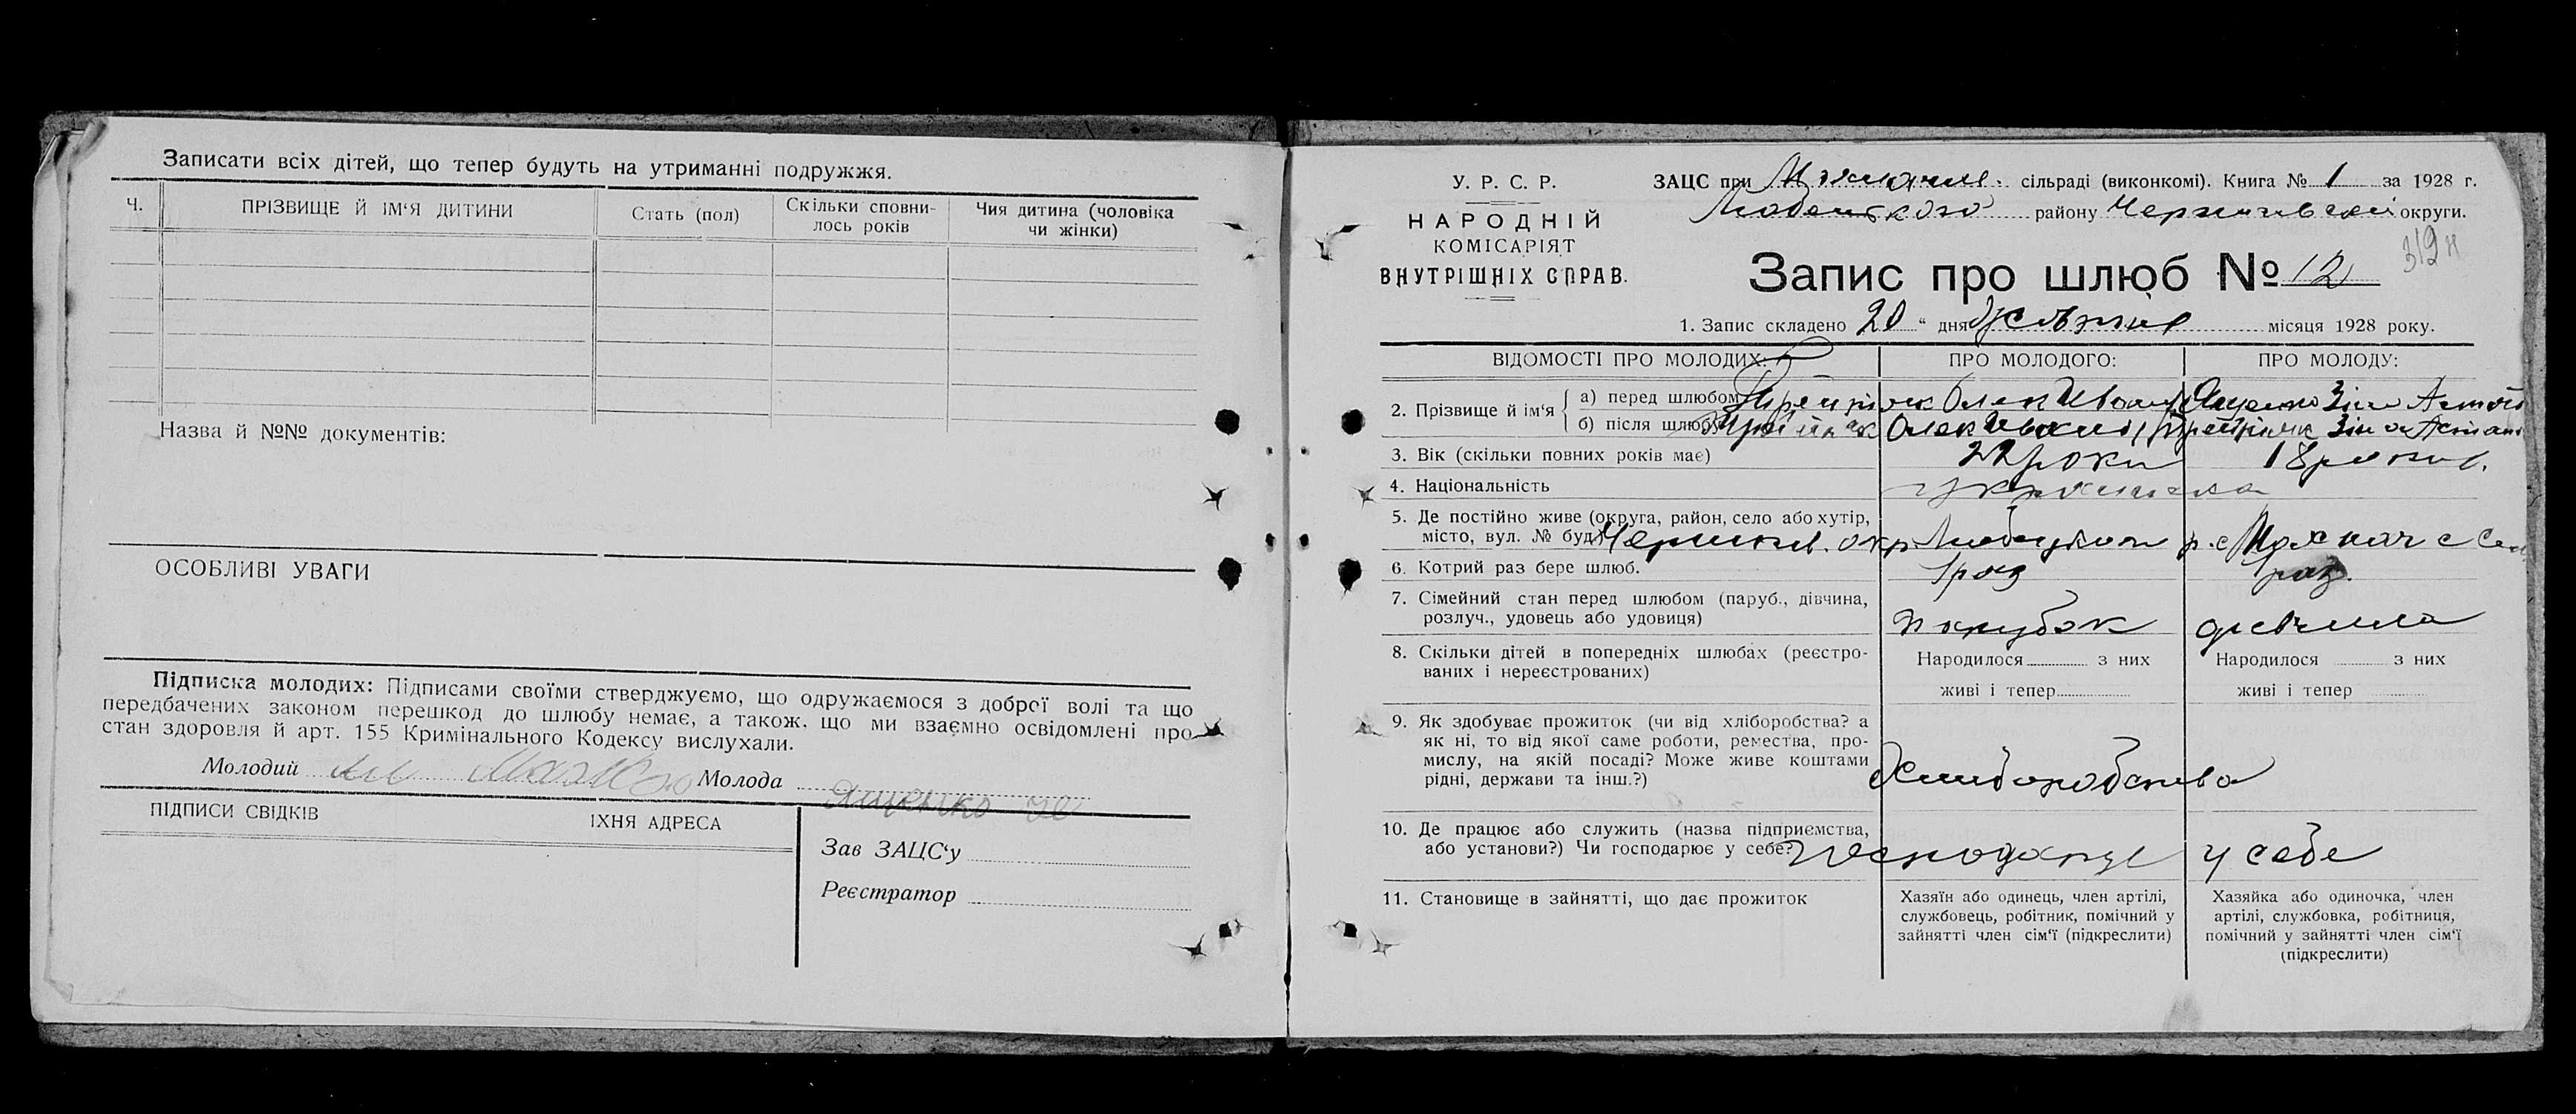 Записати всіх дітей, що тепер будуть на утриманні подружжя.
Ч.
ПРІЗВИЩЕ Й ІМ'Я ДИТИНИ
Стать (пол)
Скільки сповни-
лось років
Чия дитина (чоловіка
чи жінки)
Назва й №№ документів:
ОСОБЛИВІ УВАГИ
Підписка молодих: Підписами своїми стверджуємо, що одружаємося з доброї волі та що
передбачених законом перешкод до шлюбу немає, а також, що ми взаємно освідомлені про
стан здоровля й арт. 155 Кримінального Кодексу вислухали.
Молодий
Молода Ященко
ПІДПИСИ СВІДКІВ
ІХНЯ АДРЕСА
Зав ЗАЦС'у
Реєстратор
У. Р. С. Р.
НАРОДНІЙ
КОМІСАРІЯТ
ВНУТРІШНІХ СПРАВ.
ЗАЦС при сільраді (виконкомі). Книга № 1 за 1928 г.
Любецкого району Чернигівської округи.
319
Запис про шлюб № 12
1. Запис складено 20 " дня Жовтня місяця 1928 року.
ВІДОМОСТІ ПРО МОЛОДИХ:
ПРО МОЛОДОГО:
ПРО МОЛОДУ:
2. Прізвище й ім'я
а) перед шлюбом Олек Иван Ященко Зін
б) після шлюбу Олек Иван Зін
3. Вік (скільки повних років має) 22 роки 18 років.
4. Національність українська
5. Де постійно живе (округа, район, село або хутір,
місто, вул. № буд.) Чернигів. окр Любецкий р. с
6. Котрий раз бере шлюб. 1 раз 1 раз.
7. Сімейний стан перед шлюбом (паруб., дівчина,
розлуч., удовець або удовиця) парубок дівчина
8. Скільки дітей в попередніх шлюбах (реєстро-
ваних і нереєстрованих)
Народилося з них
живі і тепер
Народилося з них
живі і тепер
9. Як здобуває прожиток (чи від хліборобства? а
як ні, то від якої саме роботи, ремества, про-
мислу, на якій посаді? Може живе коштами
рідні, держави та інш.?)
Хліборобства
10. Де працює або служить (назва підприємства,
або установи?) Чи господарює у себе? господарує у себе
11. Становище в зайнятті, що дає прожиток
Хазяїн або одинець, член артілі,
службовець, робітник, помічний у
зайнятті член сім'ї (підкреслити)
Хазяйка або одиночка, член
артілі, службовка, робітниця,
помічний у зайнятті член сім'ї
(підкреслити)